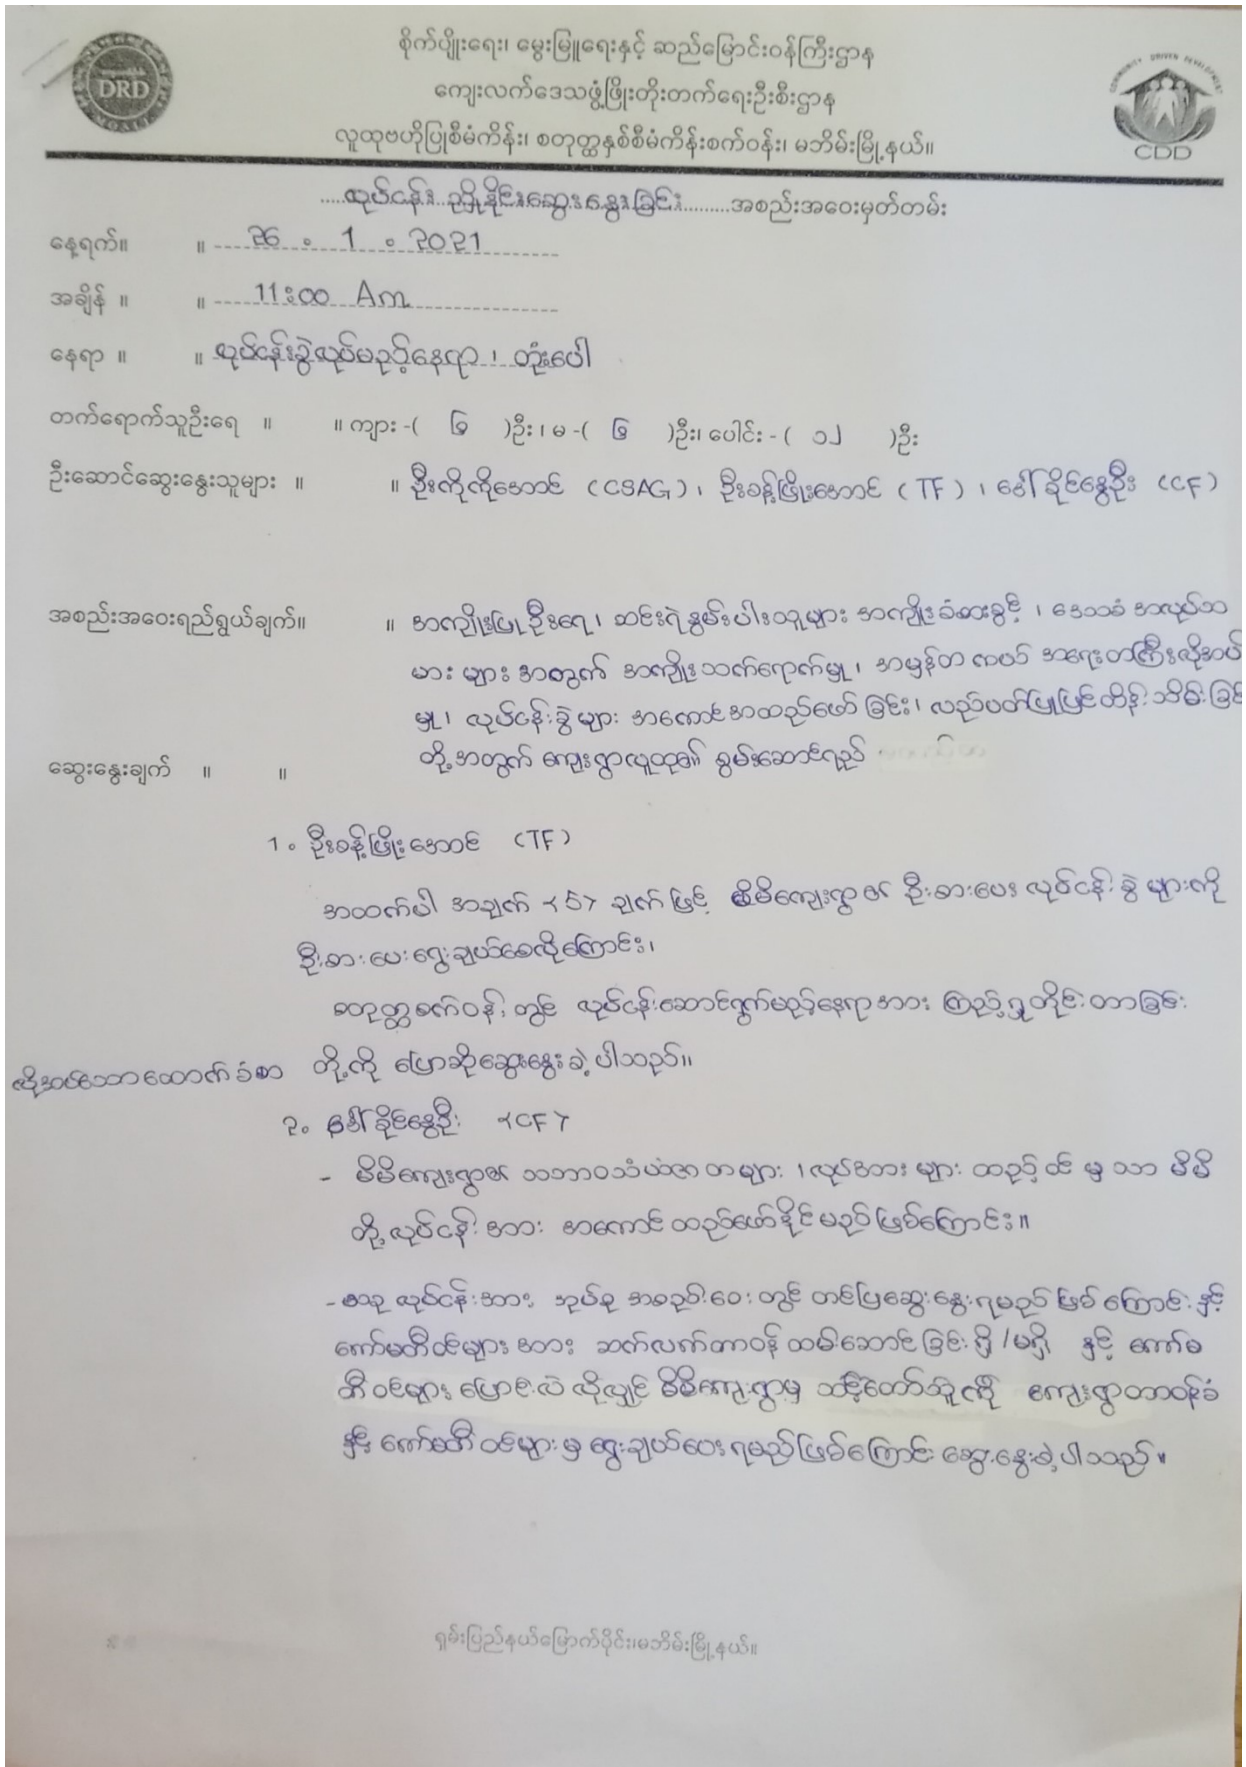 စိုက်ပျိုးရေး၊ မွေးမြူရေးနှင့် ဆည်မြောင်းဝန်ကြီးဌာန
DRD
ကျေးလက်ဒေသဖွံ့ဖြိုးတိုးတက်ရေးဦးစီးဌာန
MOALI
COMMUNITY DRIVEN DEVELOPMENT
CDD
လူထုဗဟိုပြုစီမံကိန်း၊ စတုတ္ထနှစ်စီမံကိန်းစက်ဝန်း၊ မဘိမ်းမြို့နယ်။
လုပ်ငန်း ညှိနှိုင်းဆွေးနွေးခြင်း အစည်းအဝေးမှတ်တမ်း
နေ့ရက်။ ။ 26 . 1 . 2021
အချိန် ။ ။ 11:00 Am
နေရာ ။ ။ လုပ်ငန်းခွဲလုပ်မည့်နေရာ ၊ တုံးပေါ
တက်ရောက်သူဦးရေ ။ ။ ကျား -( ၆ )ဦး ၊ မ -( ၆ )ဦး၊ ပေါင်း - ( ၁၂ )ဦး
ဦးဆောင်ဆွေးနွေးသူများ ။ ။ ဦးကိုကိုအောင် (CSAG) ၊ ဦးခန့်ဖြိုးအောင် (TF) ၊ ဒေါ်ခိုင်နွေဦး (CF)
အစည်းအဝေးရည်ရွယ်ချက်။ ။ အကျိုးပြုဦးရေ ၊ ဆင်းရဲနွမ်းပါးသူများ အကျိုးခံစားခွင့် ၊ ဒေသခံ အလုပ်သ
မားများအတွက် အကျိုးသက်ရောက်မှု ၊ အမှန်တကယ် အရေးတကြီးလိုအပ်
မှု၊ လုပ်ငန်းခွဲများ အကောင်အထည်ဖော်ခြင်း၊ လည်ပတ်ပြုပြင်ထိန်းသိမ်းခြင်း
တို့အတွက် ကျေးရွာလူထု၏ စွမ်းဆောင်ရည်
ဆွေးနွေးချက် ။ ။
1. ဦးခန့်ဖြိုးအောင် (TF)
အထက်ပါ အချက် <5> ချက်ဖြင့် မိမိကျေးရွာ၏ ဦးစားပေး လုပ်ငန်းခွဲများကို
ဦးစားပေးရွေးချယ်စေလိုကြောင်း၊
စတုတ္ထစက်ဝန်းတွင် လုပ်ငန်းဆောင်ရွက်မည့်နေရာအား ကြည့်ရှုတိုင်းတာခြင်း
လိုအပ်သောထောက်ခံစာ တို့ကို ပြောဆိုဆွေးနွေးခဲ့ပါသည်။
2. ဒေါ်ခိုင်နွေဦး <CF>
- မိမိကျေးရွာ၏ သဘာဝသယံဇာတများ ၊ လုပ်အားများ ထည့်ဝင်မှသာ မိမိ
တို့လုပ်ငန်းအား အကောင်ထည်ဖော်နိုင်မည်ဖြစ်ကြောင်း။
- ယခု လုပ်ငန်းအား အုပ်စု အစည်းဝေးတွင် တင်ပြဆွေးနွေးရမည်ဖြစ်ကြောင်းနှင့်
ကော်မတီဝင်များအား ဆက်လက်တာဝန်ထမ်းဆောင်ခြင်း ရှိ/မရှိ နှင့် ကော်မ
တီဝင်များပြောင်းလဲလိုလျှင် မိမိကျေးရွာမှ သင့်တော်သူကို ကျေးရွာတာဝန်ခံ
နှင့် ကော်မတီဝင်များမှ ရွေးချယ်ပေးရမည်ဖြစ်ကြောင်း ဆွေးနွေးခဲ့ပါသည်။
ရှမ်းပြည်နယ်မြောက်ပိုင်း၊မဘိမ်းမြို့နယ်။